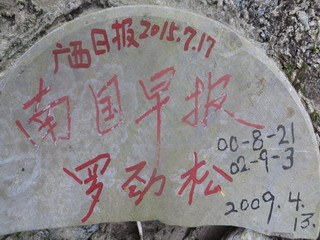 广西日报2015.7.17
南国早报
罗劲松
00-8-21
02-9-3
2009.4.
13.